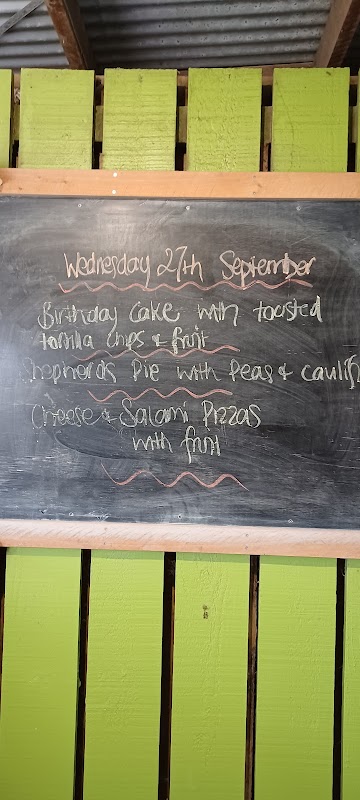 Wednesday 27th September
Birthday cake with toasted
tortilla chips & fruit
Shepherds Pie with Peas & caulif
Cheese & Salami Pizzas
with fruit